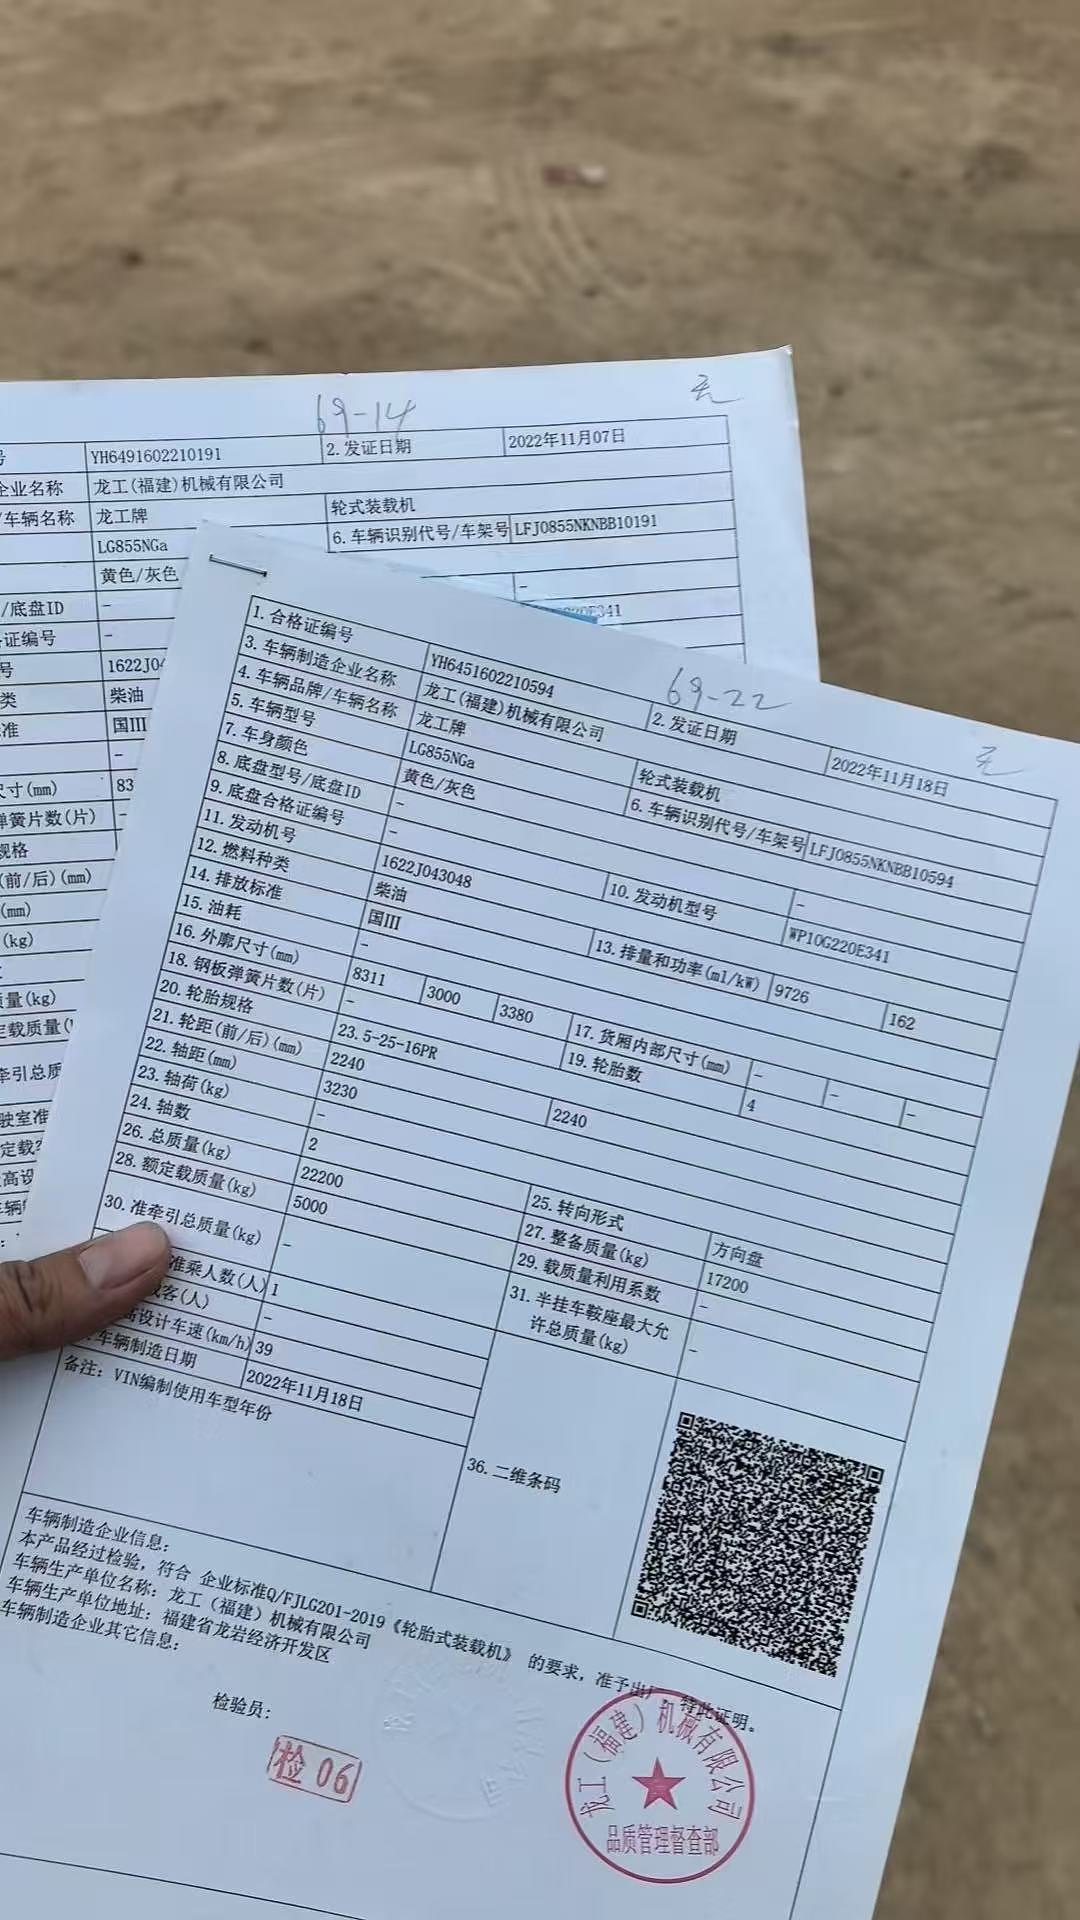 69-14
无
号 YH6491602210191 2.发证日期 2022年11月07日
企业名称 龙工(福建)机械有限公司
/车辆名称 龙工牌 轮式装载机
LG855NGa 6.车辆识别代号/车架号 LFJ0855NKNBB10191
黄色/灰色 -
/底盘ID -
证编号 -
号 1622J04
类 柴油
准 国III
-
尺寸(mm) 83
弹簧片数(片) -
规格
(前/后)(mm)
(mm)
(kg)
质量(kg)
定载质量(
牵引总质
驶室准
定载客
高设
69-22
无
1.合格证编号 YH6451602210594 2.发证日期 2022年11月18日
3.车辆制造企业名称 龙工(福建)机械有限公司
4.车辆品牌/车辆名称 龙工牌 轮式装载机
5.车辆型号 LG855NGa 6.车辆识别代号/车架号 LFJ0855NKNBB10594
7.车身颜色 黄色/灰色
8.底盘型号/底盘ID -
9.底盘合格证编号 - 10.发动机型号 - WP10G220E341
11.发动机号 1622J043048
12.燃料种类 柴油 13.排量和功率(ml/kW) 9726 162
14.排放标准 国III
15.油耗 -
16.外廓尺寸(mm) 8311 3000 3380 17.货厢内部尺寸(mm) - - -
18.钢板弹簧片数(片) - 19.轮胎数 4
20.轮胎规格 23.5-25-16PR
21.轮距(前/后)(mm) 2240 2240
22.轴距(mm) 3230
23.轴荷(kg) -
24.轴数 2 25.转向形式 方向盘
26.总质量(kg) 22200 27.整备质量(kg) 17200
28.额定载质量(kg) 5000 29.载质量利用系数 -
30.准牵引总质量(kg) - 31.半挂车鞍座最大允
许总质量(kg) -
准乘人数(人) 1
客(人) -
高设计车速(km/h) 39
车辆制造日期 2022年11月18日
备注: VIN编制使用车型年份
36.二维条码
车辆制造企业信息:
本产品经过检验, 符合 企业标准Q/FJLG201-2019《轮胎式装载机》 的要求, 准予出厂, 特此证明。
车辆生产单位名称: 龙工(福建)机械有限公司
车辆生产单位地址: 福建省龙岩经济开发区
车辆制造企业其它信息:
检验员:
检 06
龙工(福建)机械有限公司
品质管理督查部